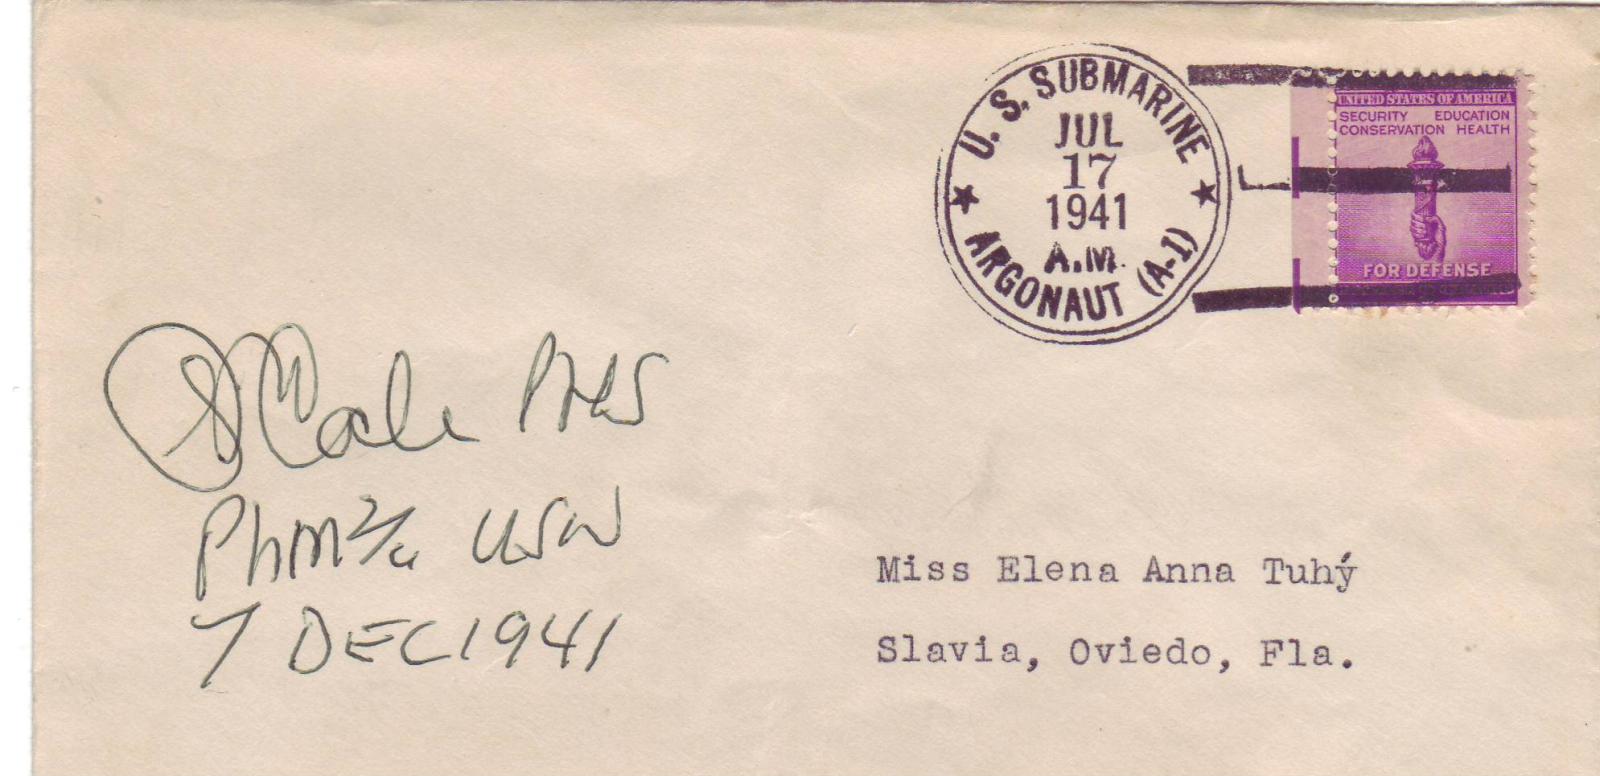 U. S. SUBMARINE
JUL
17
1941
A.M.
ARGONAUT (A-1)
UNITED STATES OF AMERICA
SECURITY EDUCATION
CONSERVATION HEALTH
FOR DEFENSE
PhM 2/c USN
7 DEC 1941
Miss Elena Anna Tuhý
Slavia, Oviedo, Fla.